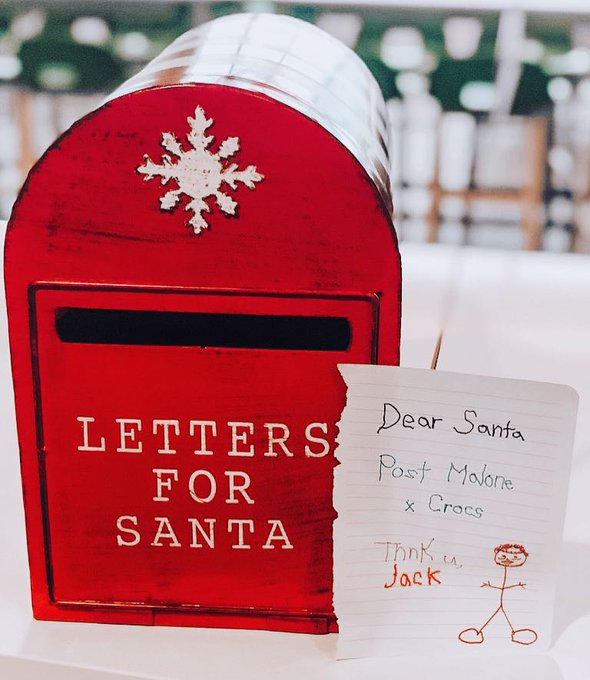 LETTERS
FOR
SANTA
Dear Santa
Post Malone
x Crocs
Thnk u,
Jack